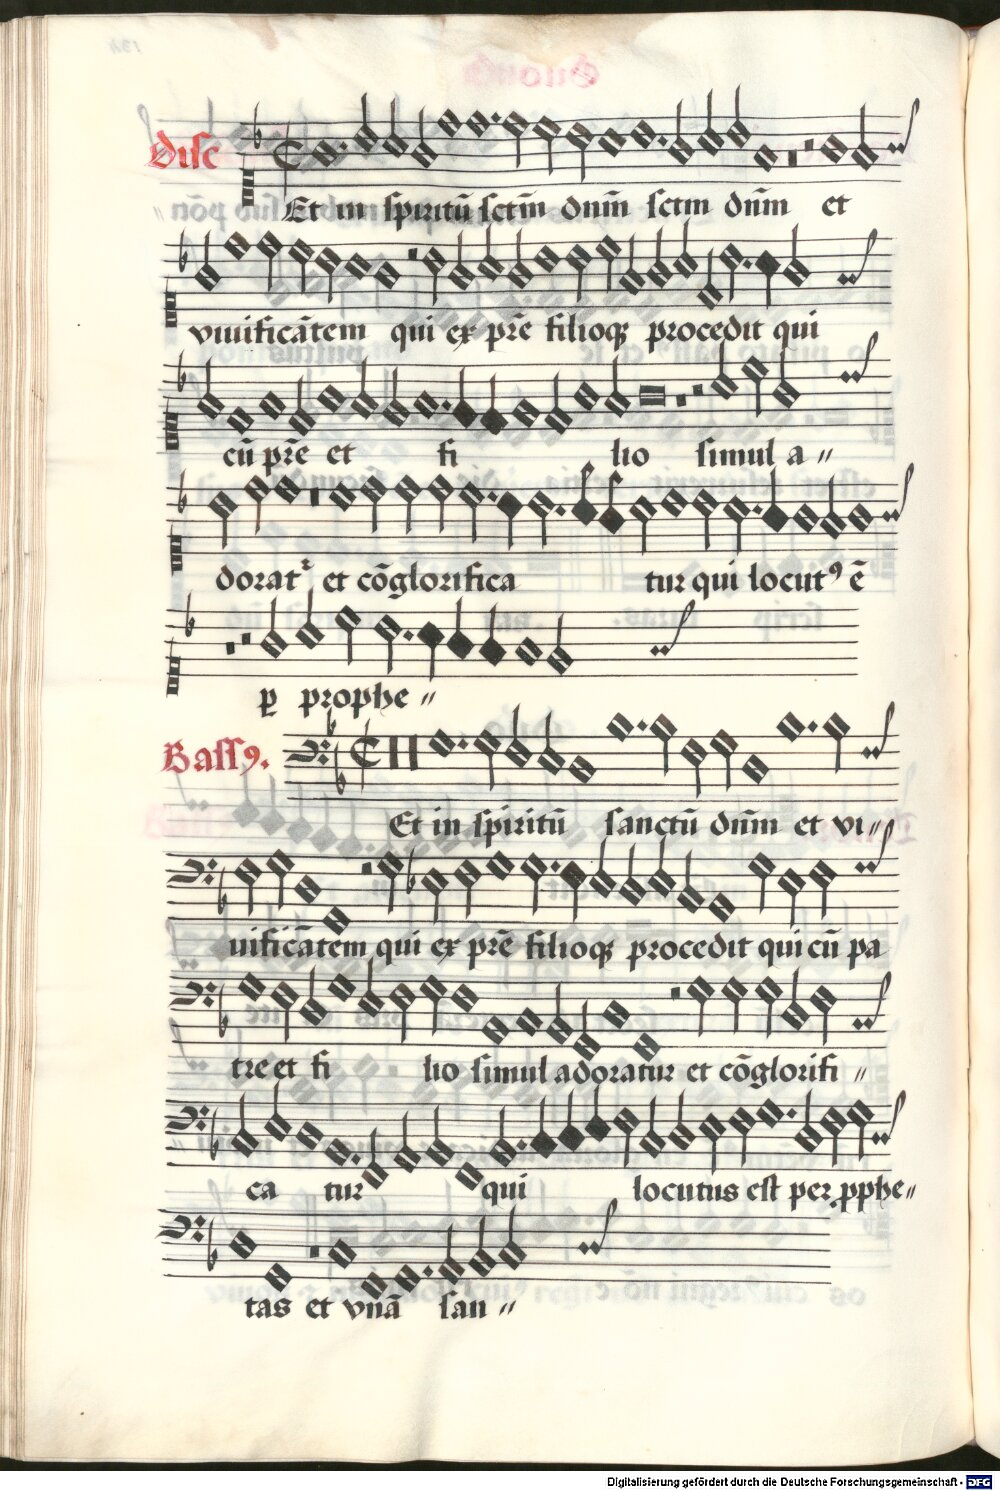 Disc
Et in spiritū sctm̄ dnm̄ sctm dnm̄ et
viuificātem qui ex prē filioqꝫ procedit qui
cū prē et fi lio simul a〃
dorat᷑ et cōglorifica tur qui locutꝰ ē
ꝑ prophe〃
Bassꝰ.
Et in spiritū sanctū dnm̄ et vi〃
uificātem qui ex prē filioqꝫ procedit qui cū pa
tre et fi lio simul adoratur et cōglorifi〃
ca tur qui locutus est per ꝓphe〃
tas et vnā san〃
Digitalisierung gefördert durch die Deutsche Forschungsgemeinschaft - DFG